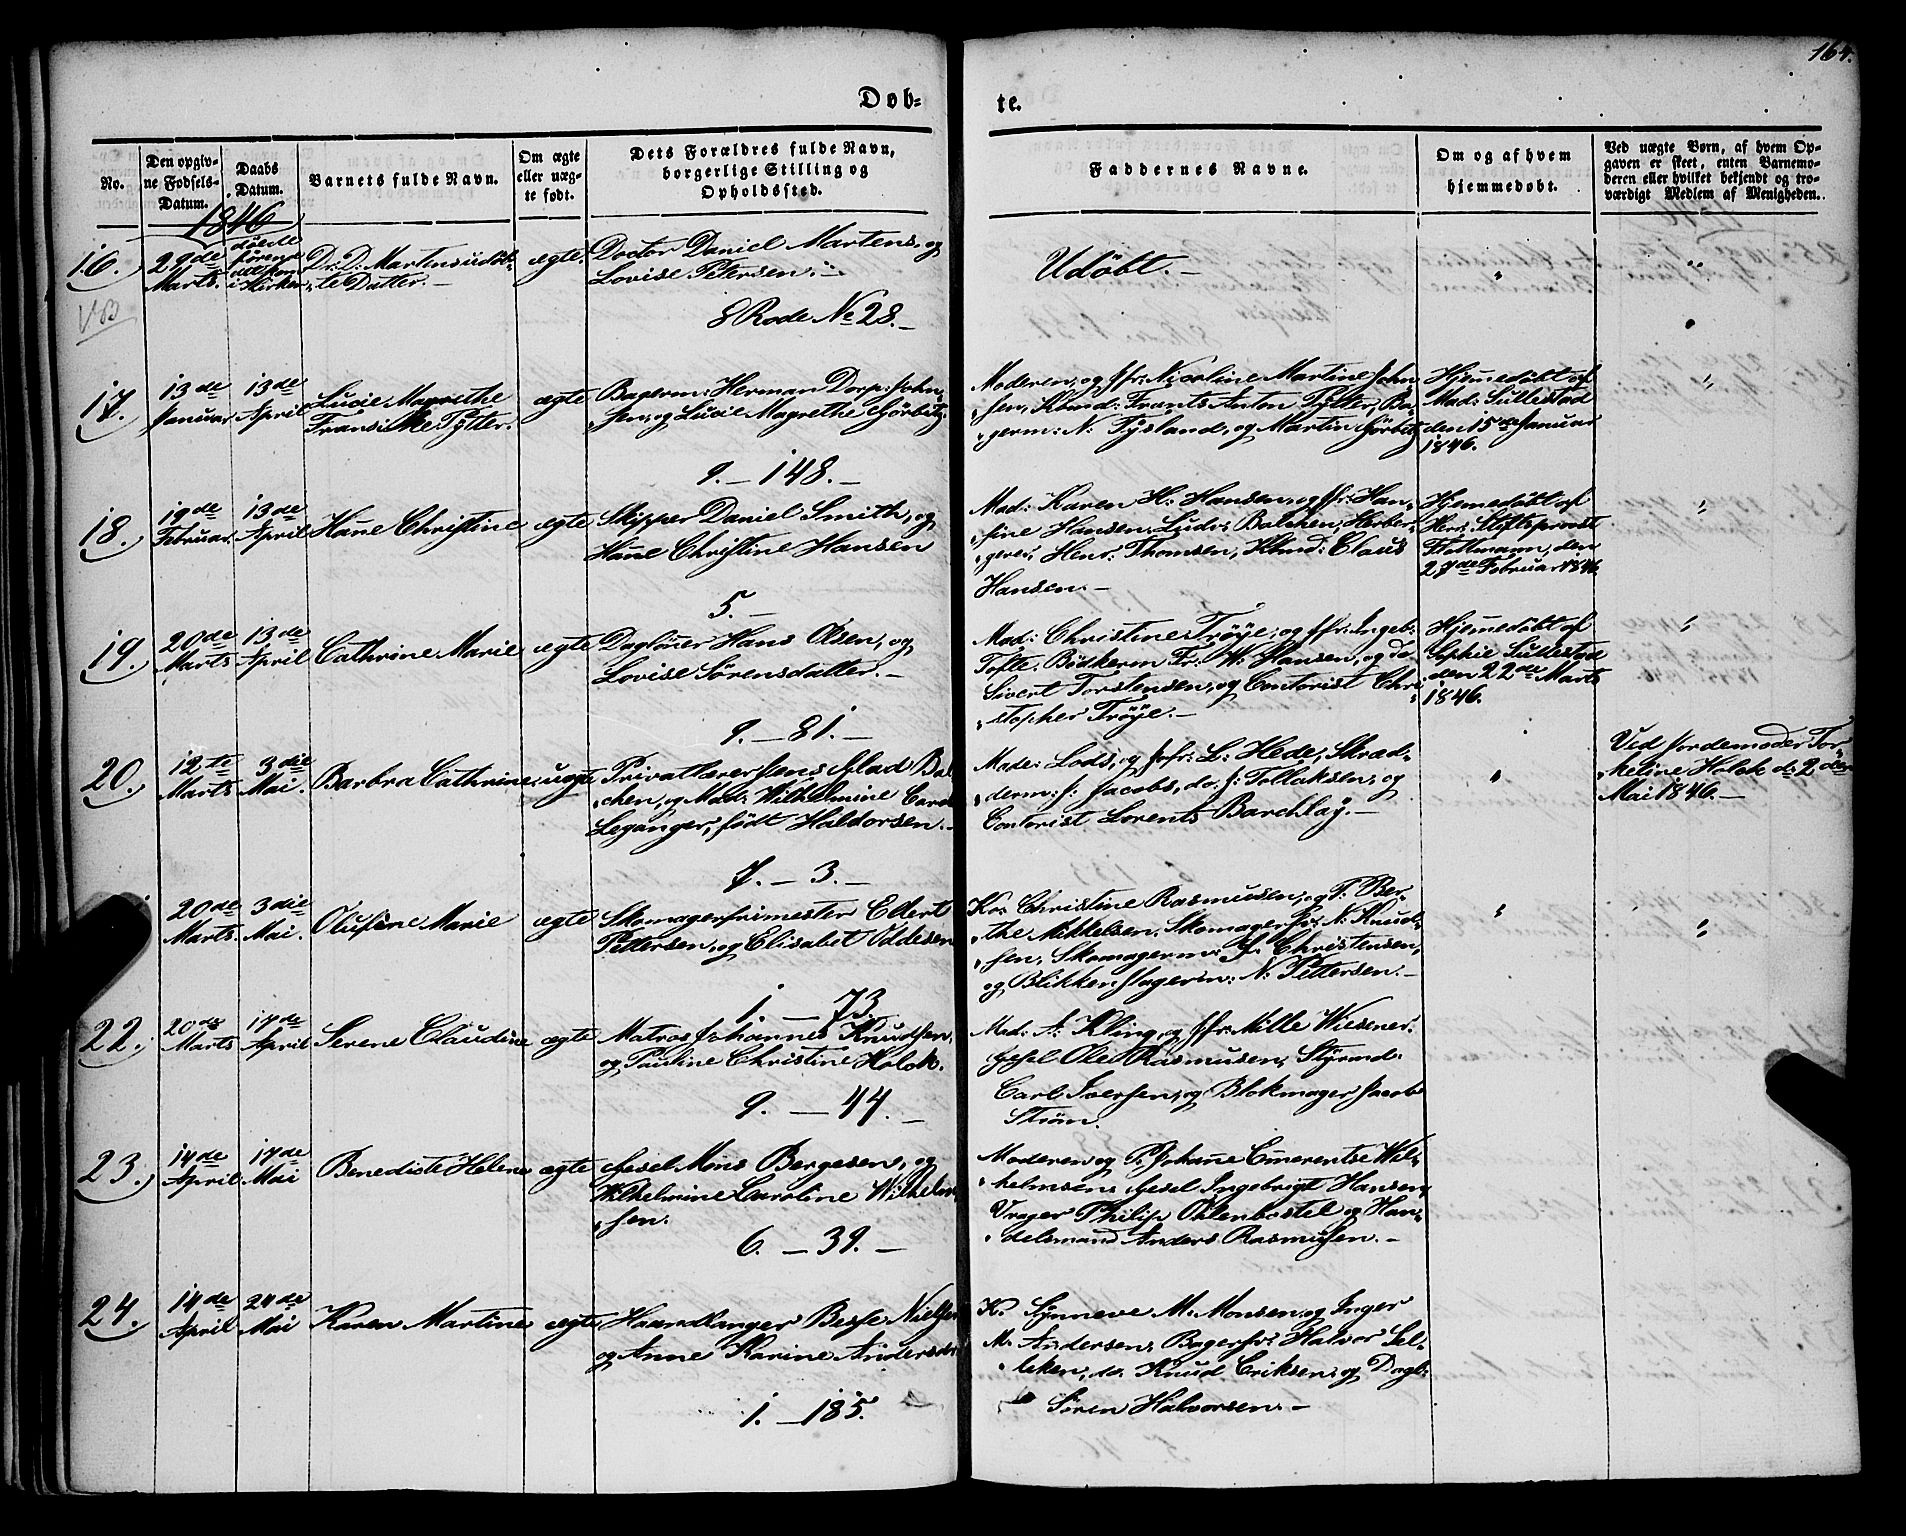 164.
Døb-
te.
No.
Den opgiv-
ne Fødsels-
Datum.
Daabs
Datum.
Barnets fulde Navn.
Om ægte
eller uæg-
te født.
Dets Forældres fulde Navn,
borgerlige Stilling og
Opholdssted.
Faddernes Navne.
Om og af hvem
hjemmedøbt.
Ved uægte Børn, af hvem Op-
gaven er skeet, enten Barnemo-
deren eller hvilket bekjendt og tro-
værdigt Medlem af Menigheden.
1846
16.
29de
Marts.
døede
førend
i Kirken
Dr: D: Martens udøb-
te Datter.
ægte.
Doctor Daniel Martens, og
Lovise Petersen.
8 Rode No 28.
Udøbt.
17.
13de
Januar
13de
April
Lucie Magrethe
Fransiske Pytter.
ægte
Bagerm: Herman Dorp: John-
sen, og Lucie Magrethe Gørbitz
9. - 148.
Moderen, og Jfr: Nicoline Martine John-
sen, Kbmd: Frants Anton Pytter, Ba-
germ: N: Tysland, og Martin Gørbitz
Hjemedøbt af
Mad: Sullestad
den 15de Januar
1846.
18.
19de
Februar
13de
April
Hane Christine
ægte
Skipper Daniel Smith, og
Hane Christine Hansen
5.
Mad: Karen H: Hansen, og Jfr: Han-
sine Hansen, Ludv: Balchen, Herber-
gerer Henr: Thomsen, Kbmd: Claus
Hansen.
Hjemedøbt af
Herr: Stiftsprovst
den
27de Februar 1846
19.
20de
Marts
13de
April
Cathrine Marie
ægte
Dagløner Hans Olsen, og
Lovise Sørensdatter.
9. - 81.
Mad: Christine Trøye, og Jfr: Ingeb:
Tofte, Bødkerm Fr: W: Hansen, og do
Sivert Torstensen, og Contorist Chri-
stopher Trøye.
Hjemedøbt af
Sophie Sullestad
den 22de Marts
1846.
20.
12te
Marts
3die
Mai
Barbra Cathrine
uægte
Privatlærer Jens Blad Bal-
chen, og Mad: Wilhelmine Carol:
Leganger, født Haldorsen.
7. - 3.
Made: Lods, og Jfr: L: Hede, Skræd-
derm: J: Jacobs, do. J: Tollaksen, og
Contorist Lorents Barchlay.
Ved Jordemoder Tor-
keline Holck d: 2den
Mai 1846.
20de
Marts.
3die
Mai.
Olufine Marie
ægte
Skomagerfrimester Elert
Pettersen, og Elisabet Oddesen
1. - 73.
Ko: Christine Rasmussen, og P. Ber-
the Mikkelsen, Skomagersv: N: Knud-
sen, Skomagerm: J: Christensen,
og Blikkenslagerm: N: Pettersen.
22.
20de
Marts
17de
April
Serene Claudine
ægte
Matros Johannes Knudsen,
og Pauline Christine Holck.
9. - 44.
Mad: A: Kling, og Jfr: Mille Wiesener
Gesel Ole Rasmusen, Styrmd:
Carl Iversen, og Blokmager Jacob
Strøm.
23.
14de
April
17de
Mai
Benedicte Helene
ægte
Gesel Mons Bergesen, og
Wilhelmine Caroline Wilhelm-
sen.
6. - 39.
Moderen og P. Johane Emerentse Wil-
helmsen, Gesel Ingebrigt Hansen,
Vrager Philip Ohlenbostel og Han-
delsmand Anders Rasmusen.
24.
14de
April
24de
Mai
Karen Martine
ægte
Haandlanger Besse Nielsen
og Anne Karine Andersdr:
1. - 185.
K. Synneve M. Monsen, og Inger
M: Andersen, Bagersv: Halvor Sel-
leken, do. Knud Eriksen, og Dagl:
Søren Halvorsen.